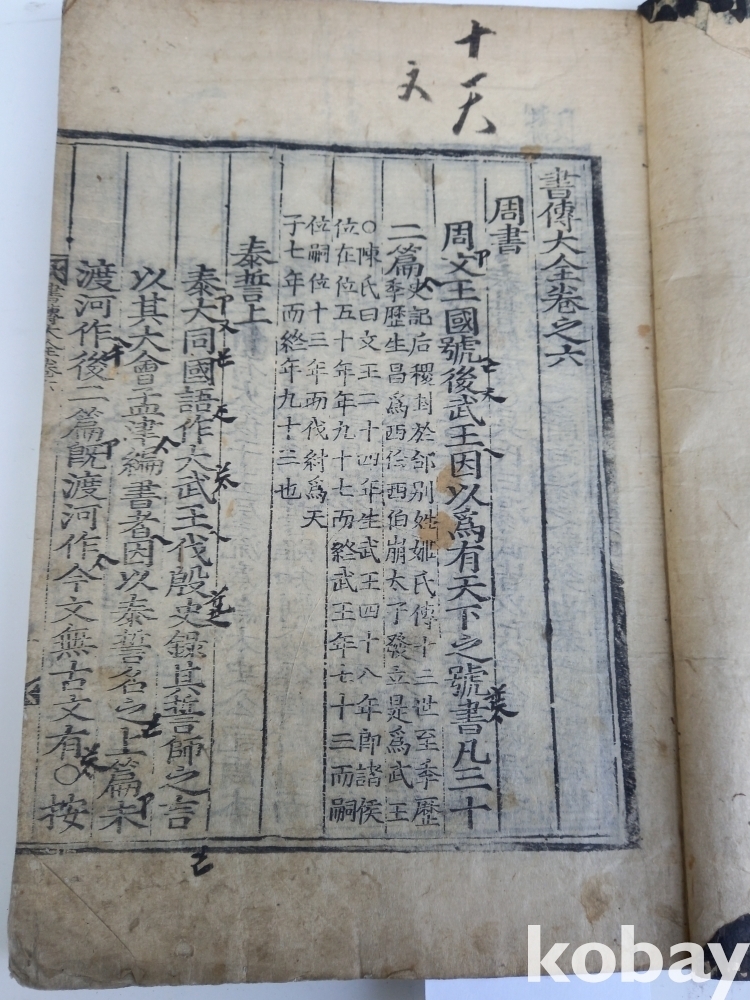 十一天
文
書傳大全卷之六
周書
周文王國號後武王因以爲有天下之號書凡三十
二篇史記后稷封於邰別姓姬氏傳十三世至季歷
季歷生昌爲西伯西伯崩太子發立是爲武王
○陳氏曰文王二十四年生武王四十八年即諸侯
位在位五十年年九十七而終武王年七十三而嗣
位嗣位十三年而伐紂爲天
子七年而終年九十三也
泰誓上
泰大同國語作大武王伐殷史錄其誓師之言
以其大會孟津編書者因以泰誓名之上篇未
渡河作後二篇旣渡河作今文無古文有○按
書傳大全卷六
kobay